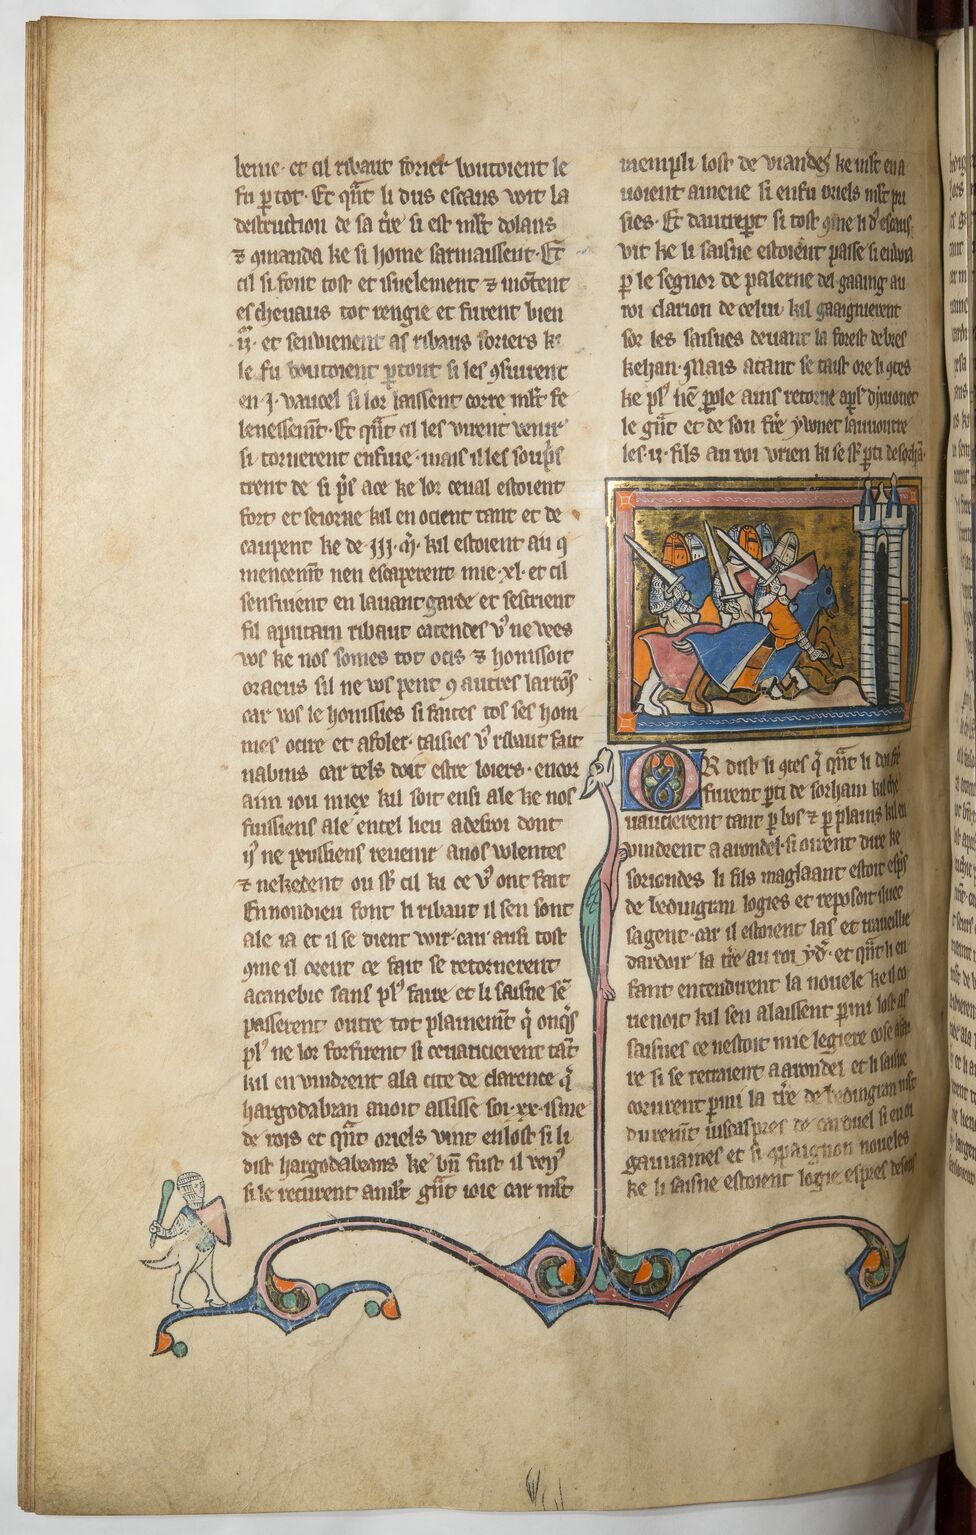 beme· et cil ribaut forier boutoient le
fu ꝑ tot· Et qñt li dus escans voit la
destruction de sa t͛re si est ml̃t dolans
⁊ ꝯmanda ke si home sarmaissent· Et
cil si font tost et isnelement ⁊ mõtent
es chevaus tot rengie et furent bien
et sen vienent as ribaus foriers k
le fu boutoient ꝑtout si les ꝯsiurent
en .j. vaucel si lor laissent corre ml̃t fe
lenessem̃t· Et qñt cil les virent venir
si tornerent en fuie· mais il les
trent de si p̃s ace ke lor ceval estoient
fort et seiorne kil en ocient tant et de
caupent ke de .iij. ꝳ. kil estoient au ꝯ
mencem̃t nen escaperent mie .xl. et cil
senfuient en lavantgarde et sescrient
fil aputain ribaut catendes vꝰ ne vees
vos ke nos somes tot ocis ⁊ honissoit
oraeus sil ne vos pent ꝯ autres larrõs
car vos le honissies si faites tos ses hom
mes ocire et afoler· taisies vꝰ ribaut fait
nabins car tels doit estre loiers· encor
aim iou miex kil soit ensi ale ke nos
fuissiens ale en tel lieu a desroi dont
ne peussiens revenir a nos volentes
⁊ nekedent ou st̃ cil ki ce vꝰ ont fait
En non dieu font li ribaut il sen sont
ale ia et il se dient voir· car ausi tost
ꝯme il orent ce fait se retornerent
a canebic sans plꝰ faire et li saisne sẽ
passerent outre tot plainem̃t
plꝰ ne lor forfirent si cevaucierent tãt
kil en vindrent a la cite de clarence q̃
hargodabran avoit assisse soi .xx. isme
de rois et qñt oriels vint en lost si li
dist hargodabrans ke bñ fust il
si le recurent a ml̃t gñt ioie car ml̃t
raempli lost de viandes ke ml̃t en a
voient amene si en fu oriels ml̃t pri
sies· Et dautrepart si tost ꝯme li dꝰ escans
vit ke li saisne estoient passe si envoia
ꝑ le segnor de palerne del gaaing au
roi clarion de celui kil gaaignierent
sor les saisnes devant la forest de bres
kehan· Mais atant se taist ore li ꝯtes
ke plꝰ nẽ parole ains retorne
le gñt et de son fr̃e yvonet
les .ij. fils au roi urien ki se st̃ ꝑti de
OR dist si ꝯtes q̃ qñt li
furent ꝑti de sorham
vaucierent tant ꝑ bos ⁊ ꝑ plains
vindrent a arondel· si oirent dire ke
soriondes li fils maglaant estoit
de bedingran logies et reposoit
sa gent· car il estoient las et traveillie
dardoir la t͛re au roi et qñt li en
fant entendirent la novele ke il
venoit kil sen alaissent ꝑmi lost as
saisnes ce nestoit mie legiere cose a fai
re si se retraient a arondel et li saisne
corurent ꝑmi la t͛re de bedingran
durem̃t iuscaspres de carduel si en oi
gauvaines et si ꝯpaignon noveles
ke li saisne estoient logie